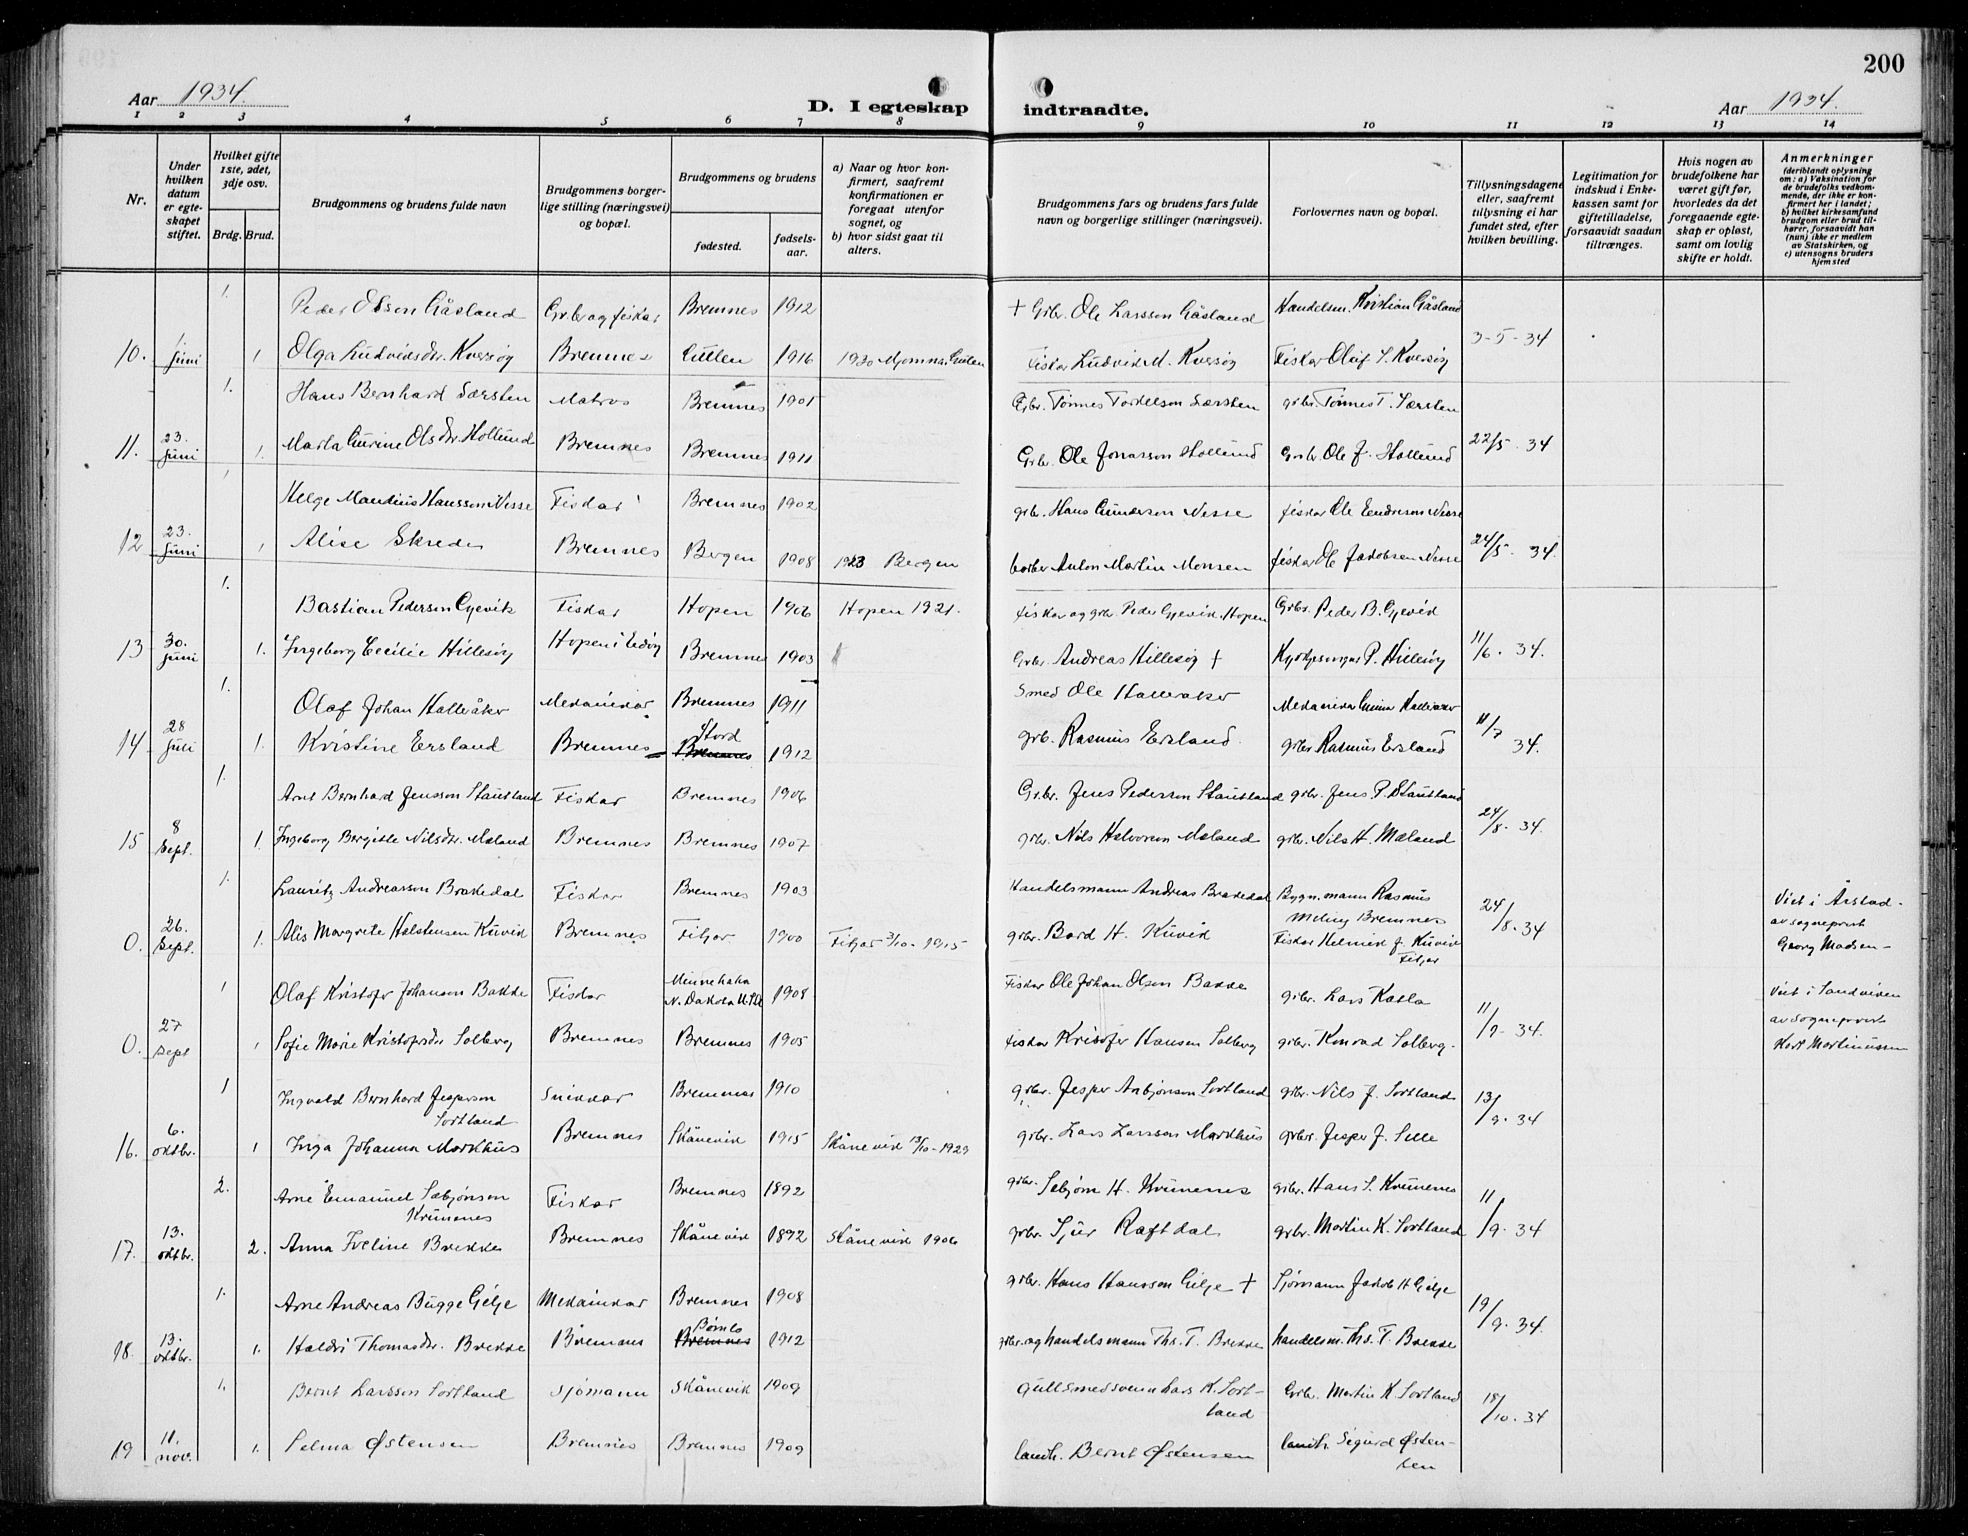 200
Aar 1934.
D. I egteskap indtraadte.
Aar 1934.
1 2 3 4 5 6 7 8 9 10 11 12 13 14
Nr.
Under hvilken datum er egteskapet stiftet.
Hvilket gifte 1ste, 2det, 3dje osv.
Brdg. Brud.
Brudgommens og brudens fulde navn
Brudgommens borgerlige stilling (næringsvei) og bopæl.
Brudgommens og brudens
fødested.
fødselsaar.
a) Naar og hvor konfirmert, saafremt konfirmationen er foregaat utenfor sognet, og
b) hvor sidst gaat til alters.
Brudgommens fars og brudens fars fulde navn og borgerlige stillinger (næringsvei).
Forlovernes navn og bopæl.
Tillysningsdagene eller, saafremt tillysning ei har fundet sted, efter hvilken bevilling.
Legitimation for indskud i Enkekassen samt for giftetilladelse, forsaavidt saadan tiltrænges.
Hvis nogen av brudefolkene har været gift før, hvorledes da det foregaaende egteskap er opløst, samt om lovlig skifte er holdt.
Anmerkninger (deriblandt oplysning om: a) Vaksination for de brudefolks vedkommende, der ikke er konfirmert her i landet; b) hvilket kirkesamfund brudgom eller brud tilhører, forsaavidt han (hun) ikke er medlem av Statskirken, og c) utensogns bruders hjemsted
1. Peder Olson Gåsland Grbr og fiskar Bremnes 1912 + Grbr. Ole Larsson Gåsland Handelsm. Kristian Gåsland
10. juni 1. Olga Ludviksdr. Kversøy Bremnes Gullen 1916 1930 Mjømna. Gulen Fiskar Ludvik M. Kversøy Fiskar Olaf S. Kversøy 3-5-34
1. Hans Bernhard Særsten Matros Bremnes 1901 Gbr. Tønnes Tordelson Særsten grbr Tønnes T. Særsten
11. 23. juni 1. Marta Gurine Olsdr. Hollund Bremnes Bremnes 1911 Grbr. Ole Jonasson Hollund Grbr. Ole J. Hollund 22/5. 34
1 Helge Mandius Hansson Nesse Fiskar Bremnes 1902 grbr. Hans Gunderson Nesse fiskar Ole Endreson Nesse
12 23. juni 1 Alise Skrede Bremnes Bergen 1908 1923 Bergen Anton Martin Monsen fiskar Ole Jakobsen Nesse 24/5. 34.
1. Bastian Pederson Gjevik Fiskar Hopen 1906 Hopen 1921. fiskar og grbr. Peder Gjevik. Hopen Grbr. Peder B. Gjevik
13 30. juni 1. Ingeborg Cecilie Hillesøy Hopen i Edøy Bremnes 1903 Grbr. Andreas Hillesøy + Kyrkjesongar P. Hillesøy 11/6. 34.
1. Olaf Johan Halleråker Mekanikar Bremnes 1911 Smed Ole Halleraker Mekaniker Gunnar Halleraker
14 28 juli 1. Kristine Ersland Bremnes Stord Bremnes 1912 grb. Rasmus Ersland. grbr Rasmus Ersland 11/7 34.
1. Arnt Bernhard Jensson Stautland Fiskar Bremnes 1906 Grbr. Jens Pederson Stautland grbr. Jens P. Stautland
15 8 Sept. 1. Ingeborg Bergitte Nilsdr. Mæland Bremnes Bremnes 1907 grbr. Nils Halvorson Mæland grbr. Nils H. Mæland 24/8. 34.
1. Lauritz Andreasson Brakedal Fiskar Bremnes 1903 Handelsmann Andreas Brakedal Bygn.mann Rasmus Meling Bremnes
0. 26. Sept. 1. Alis Margrete Halstensen Kuvik Bremnes Fitjar 1900 Fitjar 3/10-1915 grbr. Bard H. Kuvik Fiskar Helmik J. Kuvik Fitjar 24/8. 34 Viet i Årstad. av sogneprest Georg Madsen-
1 Olaf Kristofer Johanson Bakke Fiskar Minnehaha N. Dakota U.S.A 1908 Fiskar Ole Johan Olson Bakke grbr. Lars Katla
0. 27 Sept 1 Sofie Marie Kristofersdr Solberg Bremnes Bremnes 1905 Fiskar Kristofer Hansen Solberg grbr. Konrad Solberg. 11/9-34. Viet i Sandviken av sogneprest Kort Mortinussen
1 Ingvald Bernhard Jesperson Sortland Snikkar Bremnes 1910 grbr. Jesper Asbjønson Sortland grbr. Nils J. Sortland
16. 6. oktbr. 1 Inga Johanna Markhus Bremnes Skånevik 1915 Skånevik 13/10-1929 grbr. Lars Larsson Markhus grbr. Jesper J. Selle 13/9. 34
2. Arne Emanuel Sæbjønson Krunenes Fiskar Bremnes 1892 grbr. Sebjørn H. Krunenes grbr. Hans S. Krunenes
17. 13. oktbr. 2. Anna Iveline Brekke Bremnes Skånevik 1892 Skånevik 1906 grbr. Sjur Raftdal grbr. Martin K. Sortland 11/9. 34
1. Arne Andreas Bugge Gilje Mekanikar Bremnes 1908 grbr. Hans Hansson Gilje + Sjømann Jakob H Gilje
18. 13. oktbr. 1. Haldri Thomasdr. Brekke Bremnes Bømlo Bremnes 1912 grbr. og handelsmann Ths. T. Brekke handelsm. Ths. T. Brekke 19/9. 34.
1. Bernt Larsson Sortland Sjømann Skånevik 1909 Gullsmedsvenn Lars K. Sortland Grbr. Martin K. Sortland
19 11. nov. 1. Selma Østensen Bremnes Bremnes 1909 landh. Bernt Østensen landh. Sigurd Østensen 18/10. 34